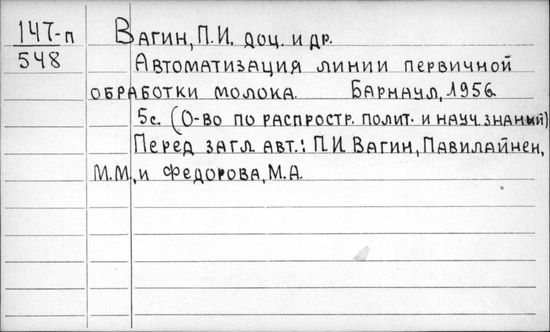 147-п
548
Вагин, П.И. доц. и др.
Автоматизация линии первичной
обработки молока. Барнаул, 1956.
5с. (О-во по распростр. полит. и науч. знаний)
Перед загл. авт.: П.И. Вагин, Павилайнен,
М.М, и Федорова, М.А.